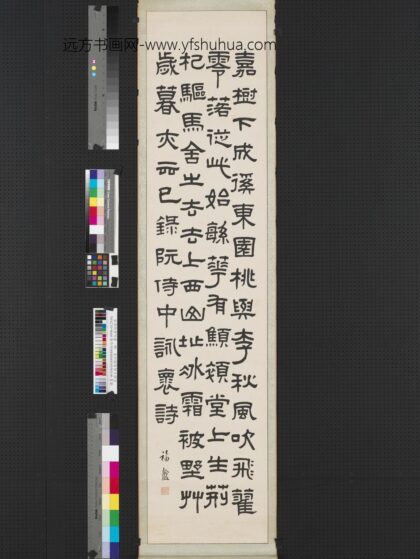 远方书画网-www.yfshuhua.com
嘉樹下成徯東園桃與李秋風吹飛藿
零落從此始緐華有顦顇堂上生荊
杞驅馬舍之去去上西山址冰霜被野艸
歲暮亦云已錄阮侍中詠褱詩
福盦